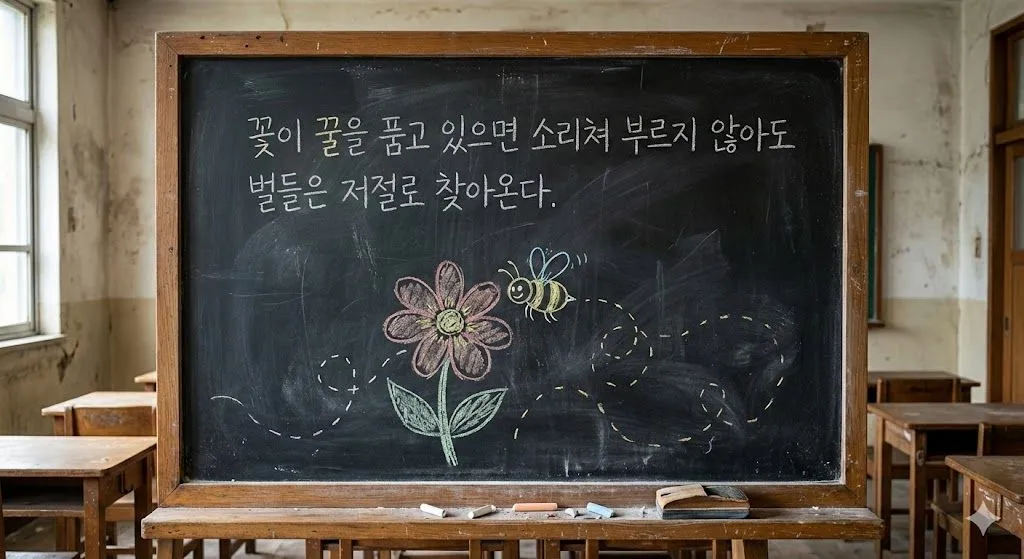 꽃이 꿀을 품고 있으면 소리쳐 부르지 않아도
벌들은 저절로 찾아온다.